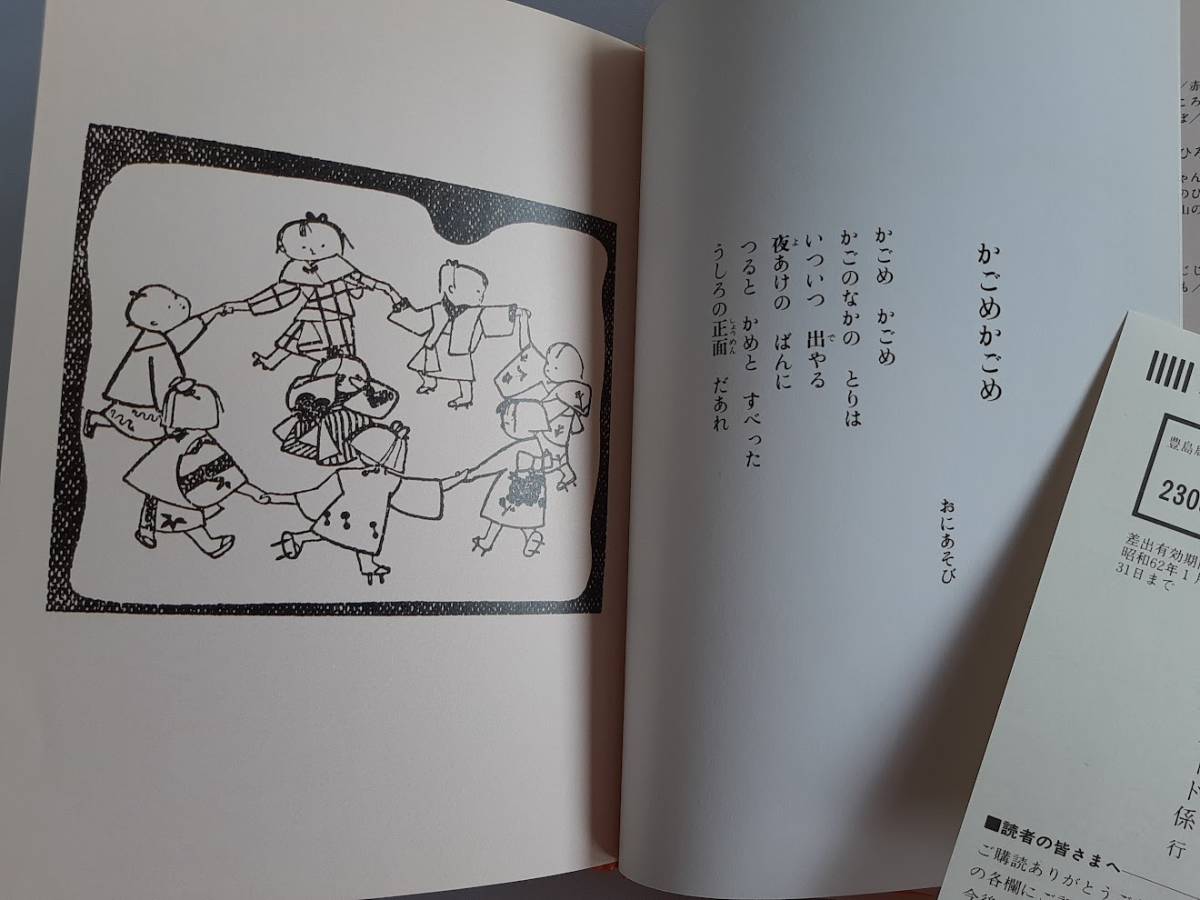 かごめかごめ
おにあそび
かごめ　かごめ
かごのなかの　とりは
いついつ　出やる
で
夜あけの　ばんに
よ
つると　かめと　すべった
うしろの正面　だあれ
しょうめん
豊島
230
差出有効期
昭和62年1
31日まで
ド係 行
■読者の皆さまへ
ご購読ありがとうご
の各欄にご
今後